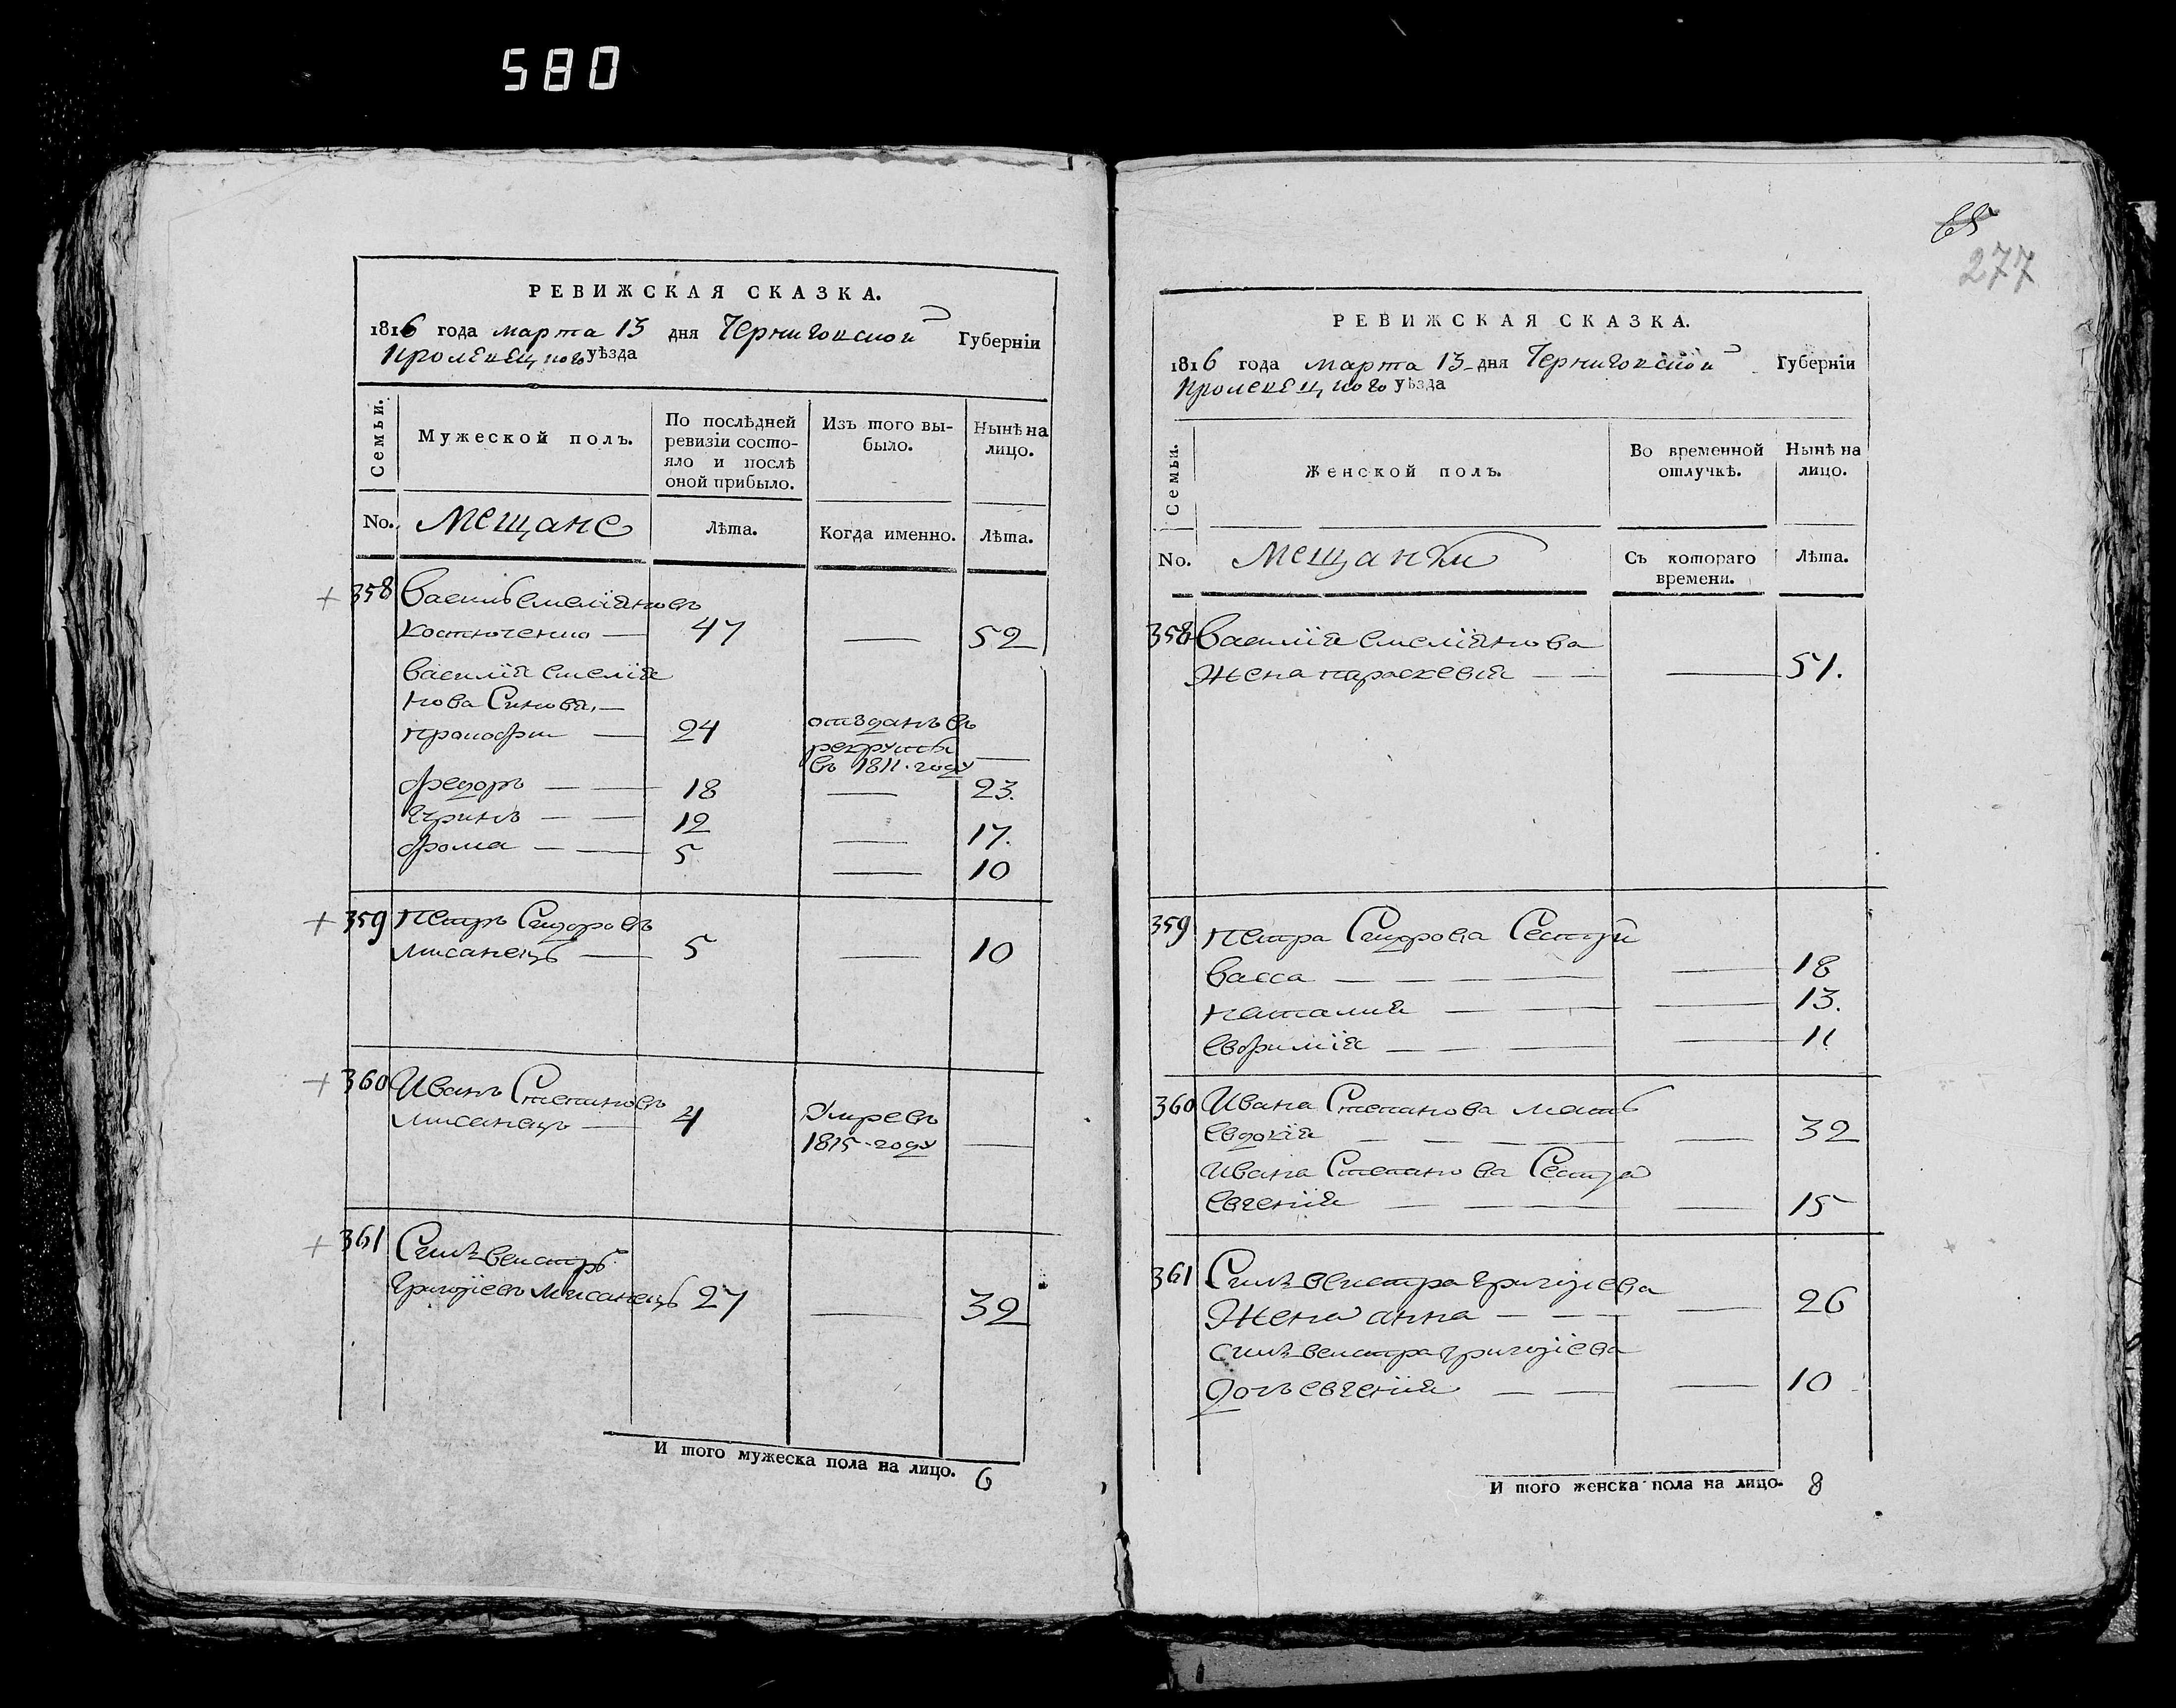 580
РЕВИЖСКАЯ СКАЗКА.
1816 года марта 13 дня Черниговской Губерніи
Кролевецкого уѣзда
Семьи.
Мужеской полъ.
По послѣдней ревизіи состо-
яло и послѣ
оной прибыло.
Изъ того вы-
было.
Нынѣ на
лицо.
No. Мещане
Лѣта.
Когда именно.
Лѣта.
358 Василь Емеліяновъ
Костюченко — 47 — 52
Василія Емелія
нова Синовя,
Прокофий — 24 отъданъ въ
рекруты —
въ 1811 году
Федоръ — — 18 — 23.
— — 12 — 17.
Фома — — 5 — 10
359 Петръ Сидоровъ
Мисанецъ — 5 — 10
360 Иванъ Степановъ
Мисанецъ — 4 Умре въ
1815 году —
361 Силвестръ
Григоріевъ Мисанецъ 27 — 32
И того мужеска пола на лицо. 6
65
277
РЕВИЖСКАЯ СКАЗКА.
1816 года марта 13 дня Черниговской Губерніи
Кролевецкого уѣзда
Семьи.
Женской полъ.
Во временной
отлучкѣ.
Нынѣ на
лицо.
No. Мещанки
Съ котораго
времени.
Лѣта.
358 Василія Емеліянова
Жена Параскевія — — — 51.
359 Петра Сидорова Сестри
Васса — — — — — 18
Наталия — — — 13.
Евфимія — — — — 11
360 Ивана Степанова мать
Евдокія — — — — 32
Ивана Степанова Сестра
Евгенія — — — — 15
361 Силвестра Григоріева
Жена Анна — — — — 26
Силвестра Григоріева
Дочь Евгенія — — — 10
И того женска пола на лицо. 8